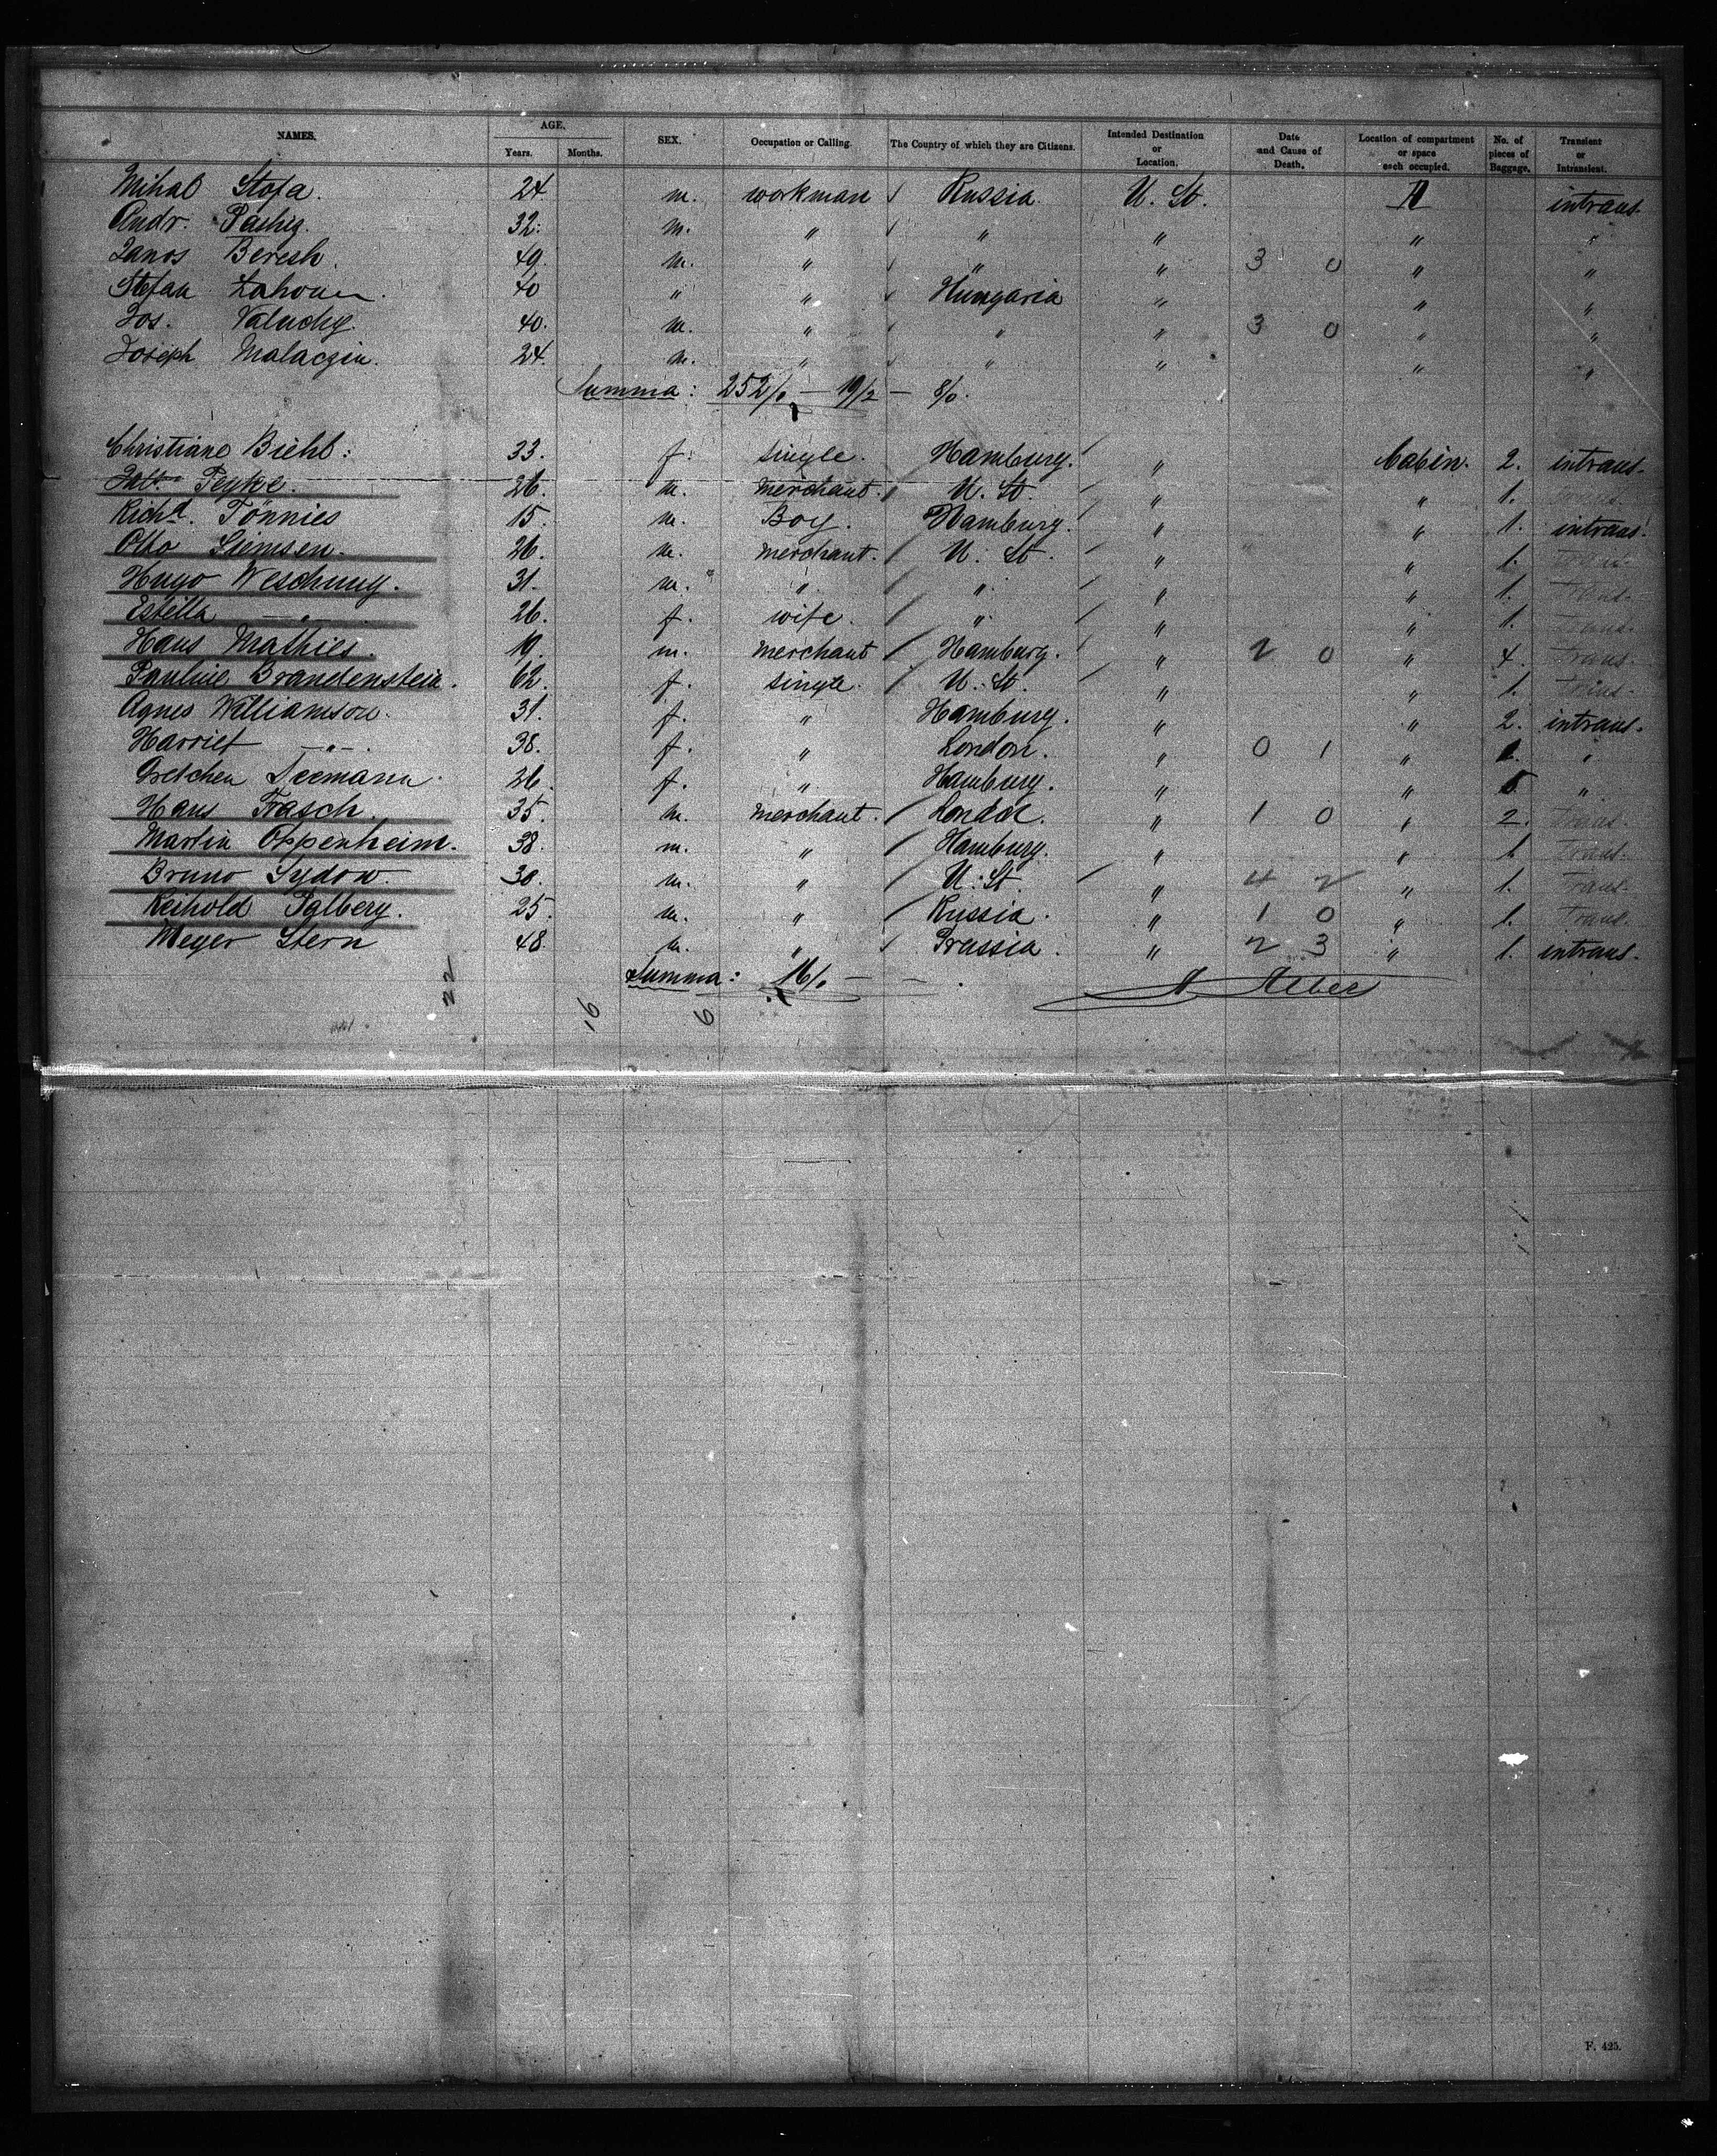 NAMES. AGE. Years. Months. SEX. Occupation or Calling. The Country of which they are Citizens. Intended Destination or Location. Date and Cause of Death. Location of compartment or space each occupied. No. of pieces of Baggage. Transient or Intransient.
Mihal Stofa. 24 m. workman Russia U. St. intrans.
Andr. 32. m. " " " " "
Janos Beresh. 49. m. " " " 3 0 " "
Stefan 40 " " Hungaria " " "
Jos. Valuchy. 40. m. " " " 3 0 " "
Joseph Malaczin. 24. m. " " " " "
Summa: 252/0 — 19/2 — 8/0.
Christiane Biehl: 33. f. single. Hamburg. " Cabin. 2. intrans.
26. m. merchant. U. St. " " 1. trans.
Richd. Tönnies 15. m. Boy. Hamburg. " " 1. intrans.
Otto Siemsen. 26. m. merchant. U. St. " " 1. trans.
Hugo 31. m. " " " " 1. trans.
Estella —"— 26. f. wife. " " " 1. trans.
Hans Mathies. 19. m. merchant Hamburg. " 2 0 " 4. trans.
Pauline Brandenstein. 62. f. single. U. St. " " 1. trans.
Agnes Williamson. 31. f. " Hamburg. " " 2. intrans.
Harriet —"—. 38. f. " London. " 0 1 " "
Gretchen 26. f. " Hamburg. " " "
Hans Frasch. 35. m. merchant. London. " 1 0 " 2. trans.
Martin Oppenheim. 38. m. " Hamburg. " " 1. trans.
Bruno Sydow. 30. m. " U. St. " 4 2 " 1. trans.
25. m. " Russia. " 1 0 " 1. trans.
Meyer Stern 48. m. " Prussia. " 2 3 " 1. intrans.
Summa: 16/0 — —.
22 16 6
F. 425.